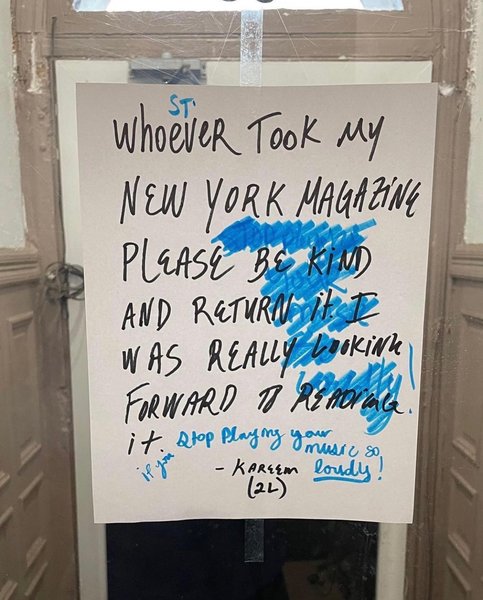 ST.
WHOEVER TOOK MY
NEW YORK MAGAZINE
PLEASE BE KIND
AND RETURN it. I
WAS REALLY LOOKING
FORWARD TO READING
it.
if you
Stop playing your
music so
loudly!
- KAREEM
(2L)